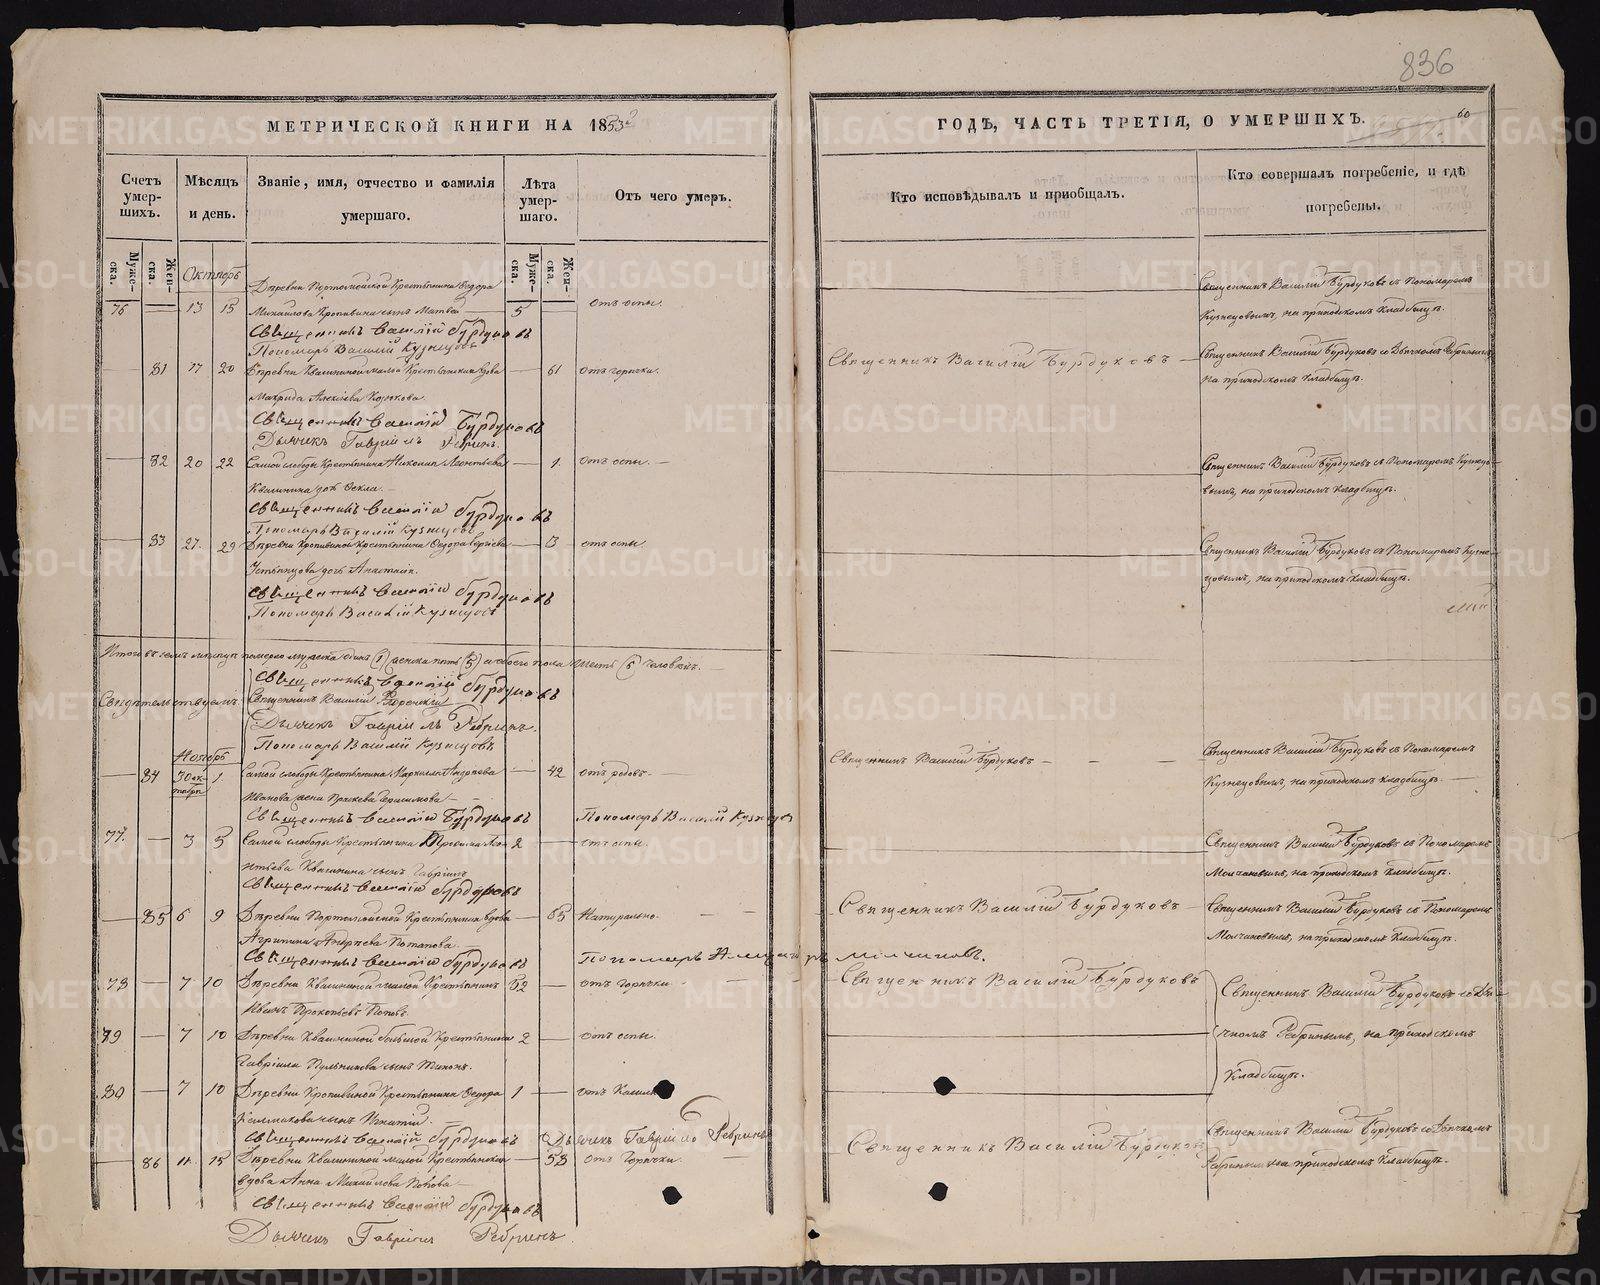 836
60
МЕТРИЧЕСКОЙ КНИГИ НА 1853
ГОДЪ, ЧАСТЬ ТРЕТІЯ, О УМЕРШИХЪ.
Счетъ умер-шихъ.
Мѣсяцъ и день.
Званіе, имя, отчество и фамилія умершаго.
Лѣта умер-шаго.
Отъ чего умеръ.
Кто исповѣдывалъ и пріобщалъ.
Кто совершалъ погребеніе, и гдѣ погребены.
Муже-ска.
Жен-ска.
Муже-ска.
Жен-ска.
Октябрь
Деревни Крестьянина Ѳедора
Священникъ Василій Бурдуковъ съ Пономаремъ
76 — 13 15 Михайлова Кропивина сынъ Матвей — 5 — отъ оспы.
Кузнецовымъ, на приходскомъ кладбищѣ.
Священникъ Василій Бурдуковъ
Пономарь Василій Кузнецовъ
— 81 17 20 Деревни Квашниной малой Крестьянская вдова — 61 отъ горячки.
Священникъ Василій Бурдуковъ —
Священникъ Василій Бурдуковъ со Дьячкомъ Ребринымъ,
Алексѣева
на приходскомъ кладбищѣ.
Священникъ Василій Бурдуковъ
Дьячекъ Гавріилъ Ребринъ.
— 82 20 22 Самой слободы Крестьянина Леонтьева — 1. отъ оспы. —
Священникъ Василій Бурдуковъ съ Пономаремъ Кузнецо-
Квашнина дочь Ѳекла. —
вымъ, на приходскомъ кладбищѣ.
Священникъ Василій Бурдуковъ
Пономарь Василій Кузнецовъ
— 83 27. 29 Деревни Кропивиной Крестьянина Ѳедора Сергѣева — отъ оспы
Священникъ Василій Бурдуковъ съ Пономаремъ Кузне-
дочь Анастасія.
цовымъ, на приходскомъ кладбищѣ.
Священникъ Василій Бурдуковъ
Пономарь Василій Кузнецовъ
Итого въ семъ мѣсяцѣ померло мужеска одинъ (1) женска пять (5) а обоего пола шесть (6) человѣкъ. —
Священникъ Василій Бурдуковъ
Свидѣтельствуемъ: Священникъ Василій
Дьячекъ Гавріилъ Ребринъ.
Пономарь Василій Кузнецовъ
Ноябрь
— 84 30 ок-тября 1 Самой слободы Крестьянина Андреева — 42 отъ родовъ —
Священникъ Василій Бурдуковъ — — —
Священникъ Василій Бурдуковъ съ Пономаремъ
Иванова жена Герасимова —
Кузнецовымъ, на приходскомъ кладбищѣ. —
Священникъ Василій Бурдуковъ Пономарь Василій Кузнецовъ
77. — 3 5 Самой слободы Крестьянина Леон- 2 — отъ оспы.
Священникъ Василій Бурдуковъ съ Пономаремъ
тьева Квашнина сынъ Гавріилъ
Молчановымъ, на приходскомъ кладбищѣ.
Священникъ Василій Бурдуковъ
— 85 6 9 Деревни Крестьянская вдова — 65 Натурально. — —
Священникъ Василій Бурдуковъ —
Священникъ Василій Бурдуковъ съ Пономаремъ
Агрипина Андреева Потапова. —
Молчановымъ, на приходскомъ кладбищѣ.
Священникъ Василій Бурдуковъ Пономарь Молчановъ.
78 — 7 10 Деревни Квашниной малой Крестьянинъ 52 — отъ Горячки —
Священникъ Василій Бурдуковъ
Священникъ Василій Бурдуковъ со Дья-
Иванъ Прокопьевъ Поповъ.
79 — 7 10 Деревни Квашниной большой Крестьянина 2 — отъ оспы.
чкомъ Ребринымъ, на приходскомъ
Гавріила Пульникова сынъ Тихонъ.
кладбищѣ.
80 — 7 10 Деревни Кропивиной Крестьянина Ѳедора 1 — отъ Кашля
Калмакова сынъ Игнатій.
Священникъ Василій Бурдуковъ Дьячекъ Гавріилъ Ребринъ
— 86 11 15 Деревни Квашниной малой Крестьянская — 53 отъ Горячки. —
Священникъ Василій Бурдуковъ
Священникъ Василій Бурдуковъ со Дьячкомъ
вдова Анна Михайлова Попова —
Ребринымъ на приходскомъ кладбищѣ.
Священникъ Василій Бурдуковъ
Дьячекъ Гавріилъ Ребринъ
METRIKI.GASO-URAL.RU